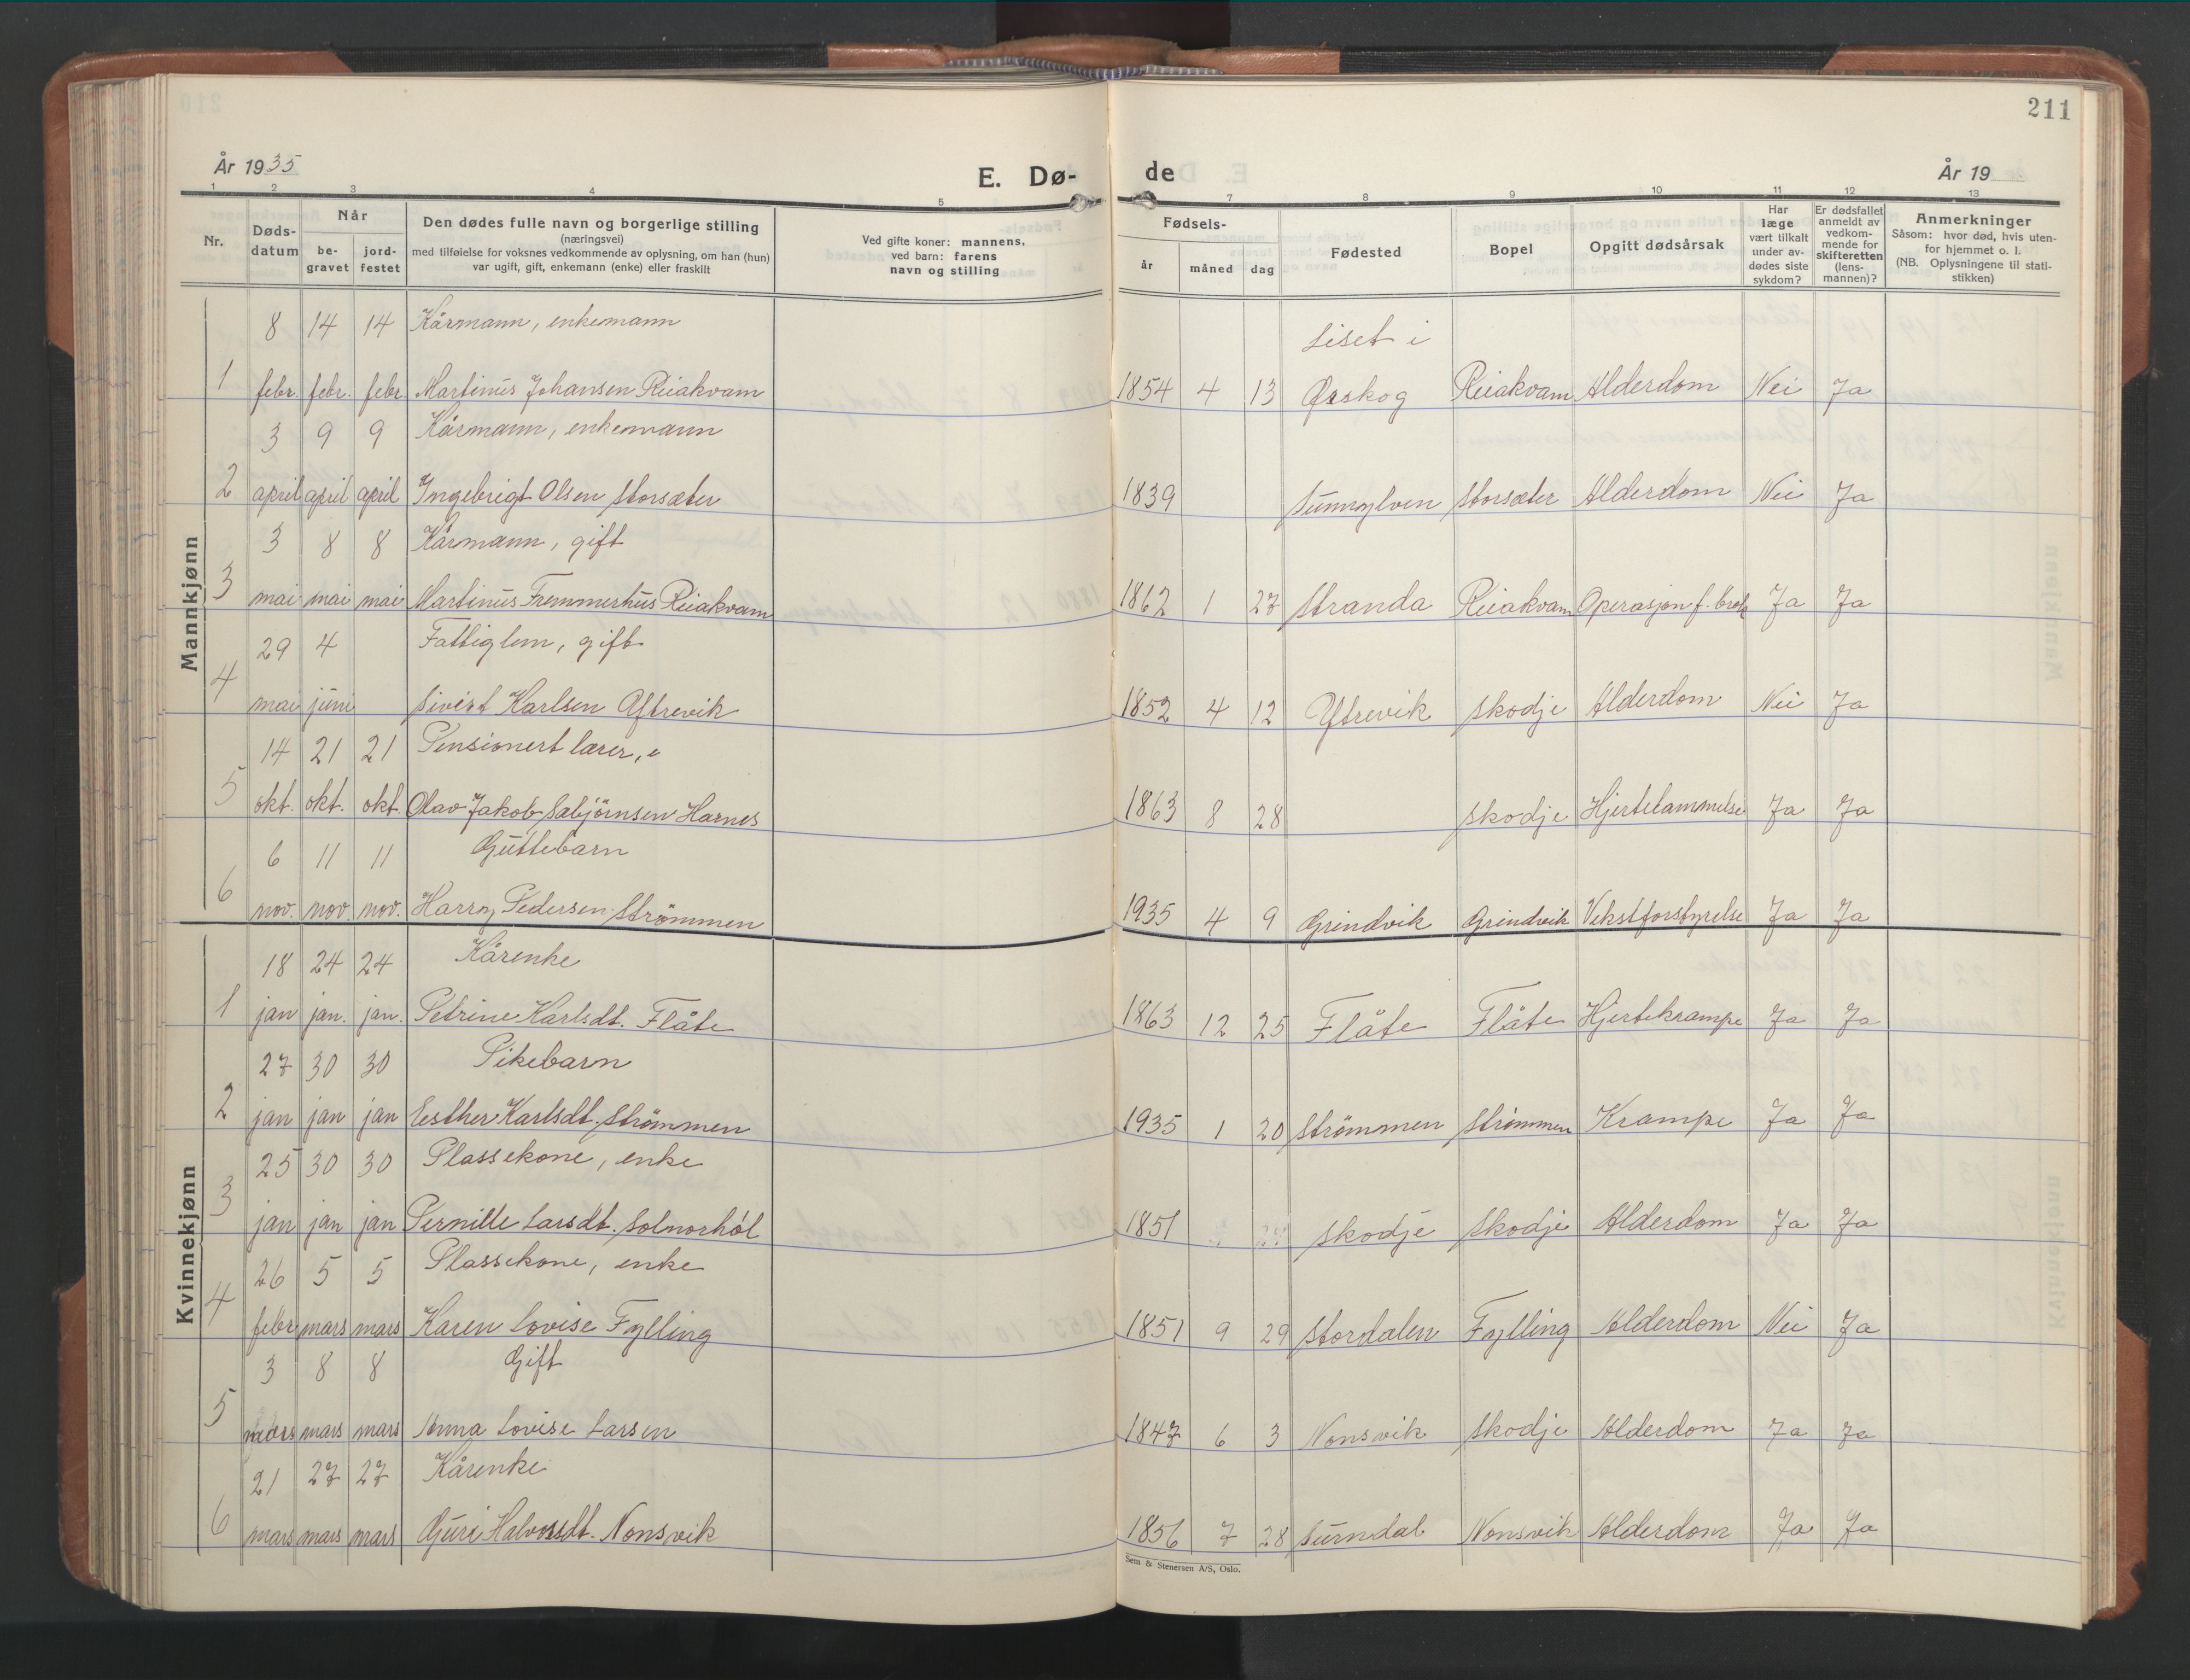 211
År 1935
E. Dø-
de
År 19
1 2 3 4 5 7 8 9 10 11 12 13
Nr.
Døds-
datum
Når
be-
gravet
jord-
festet
Den dødes fulle navn og borgerlige stilling
(næringsvei)
med tilføielse for voksnes vedkommende av oplysning, om han (hun)
var ugift, gift, enkemann (enke) eller fraskilt
Ved gifte koner: mannens,
ved barn: farens
navn og stilling
Fødsels-
år måned dag
Fødested
Bopel
Opgitt dødsårsak
Har
læge
vært tilkalt
under av-
dødes siste
sykdom?
Er dødsfallet
anmeldt av
vedkom-
mende for
skifteretten
(lens-
mannen)?
Anmerkninger
Såsom: hvor død, hvis uten-
for hjemmet o. l.
(NB. Oplysningene til stati-
stikken)
Mannkjønn
8 14 14 Kårmann, enkemann Liset i
1 febr. febr. febr. Martinus Johansen Reiakvam 1854 4 13 Ørskog Reiakvam Alderdom Nei Ja
3 9 9 Kårmann, enkemann
2 april april april Ingebrigt Olsen Storsæter 1839 Sunnylven Storsæter Alderdom Nei Ja
3 8 8 Kårmann, gift
3 mai mai mai Martinus Fremmerhus Reiakvam 1862 1 27 Stranda Reiakvam Operasjon f. brok Ja Ja
29 4 Fattiglem, gift
4 mai juni Sivert Karlsen Ytrevik 1852 4 12 Ytrevik Skodje Alderdom Nei Ja
14 21 21 Pensionert lærer, e
5 okt. okt. okt. Olav Jakob Sabjörnsen Harnes 1863 8 28 Skodje Hjertelammelse Ja Ja
6 11 11 Guttebarn
6 nov. nov. nov. Harry Pedersen Strömmen 1935 4 9 Grindvik Grindvik Vekstforstyrelse Ja Ja
Kvinnekjønn
18 24 24 Kårenke
1 jan jan. jan. Petrine Karlsdt. Flåte 1863 12 25 Flåte Flåte Hjertekrampe Ja Ja
27 30 30 Pikebarn
2 jan jan jan Eesther Karlsdt. Strömmen 1935 1 20 Strömmen Strömmen Krampe Ja Ja
25 30 30 Plassekone, enke
3 jan jan jan Pernille Larsdt. Solnorhól 1851 Skodje Skodje Alderdom Ja Ja
26 5 5 Plassekone, enke
4 febr mars mars Karen Lovise Fylling 1851 9 29 Stordalen Fylling Alderdom Nei Ja
3 8 8 Gift
5 mars mars mars Anna Lovise Larsen 1847 6 3 Nonsvik Skodje Alderdom Ja Ja
21 27 27 Kårenke
6 mars mars mars Guri Halvorsdt. Nonsvik 1856 7 28 Surndal Nonsvik Alderdom Ja Ja
Sem & Stenersen A/S, Oslo.